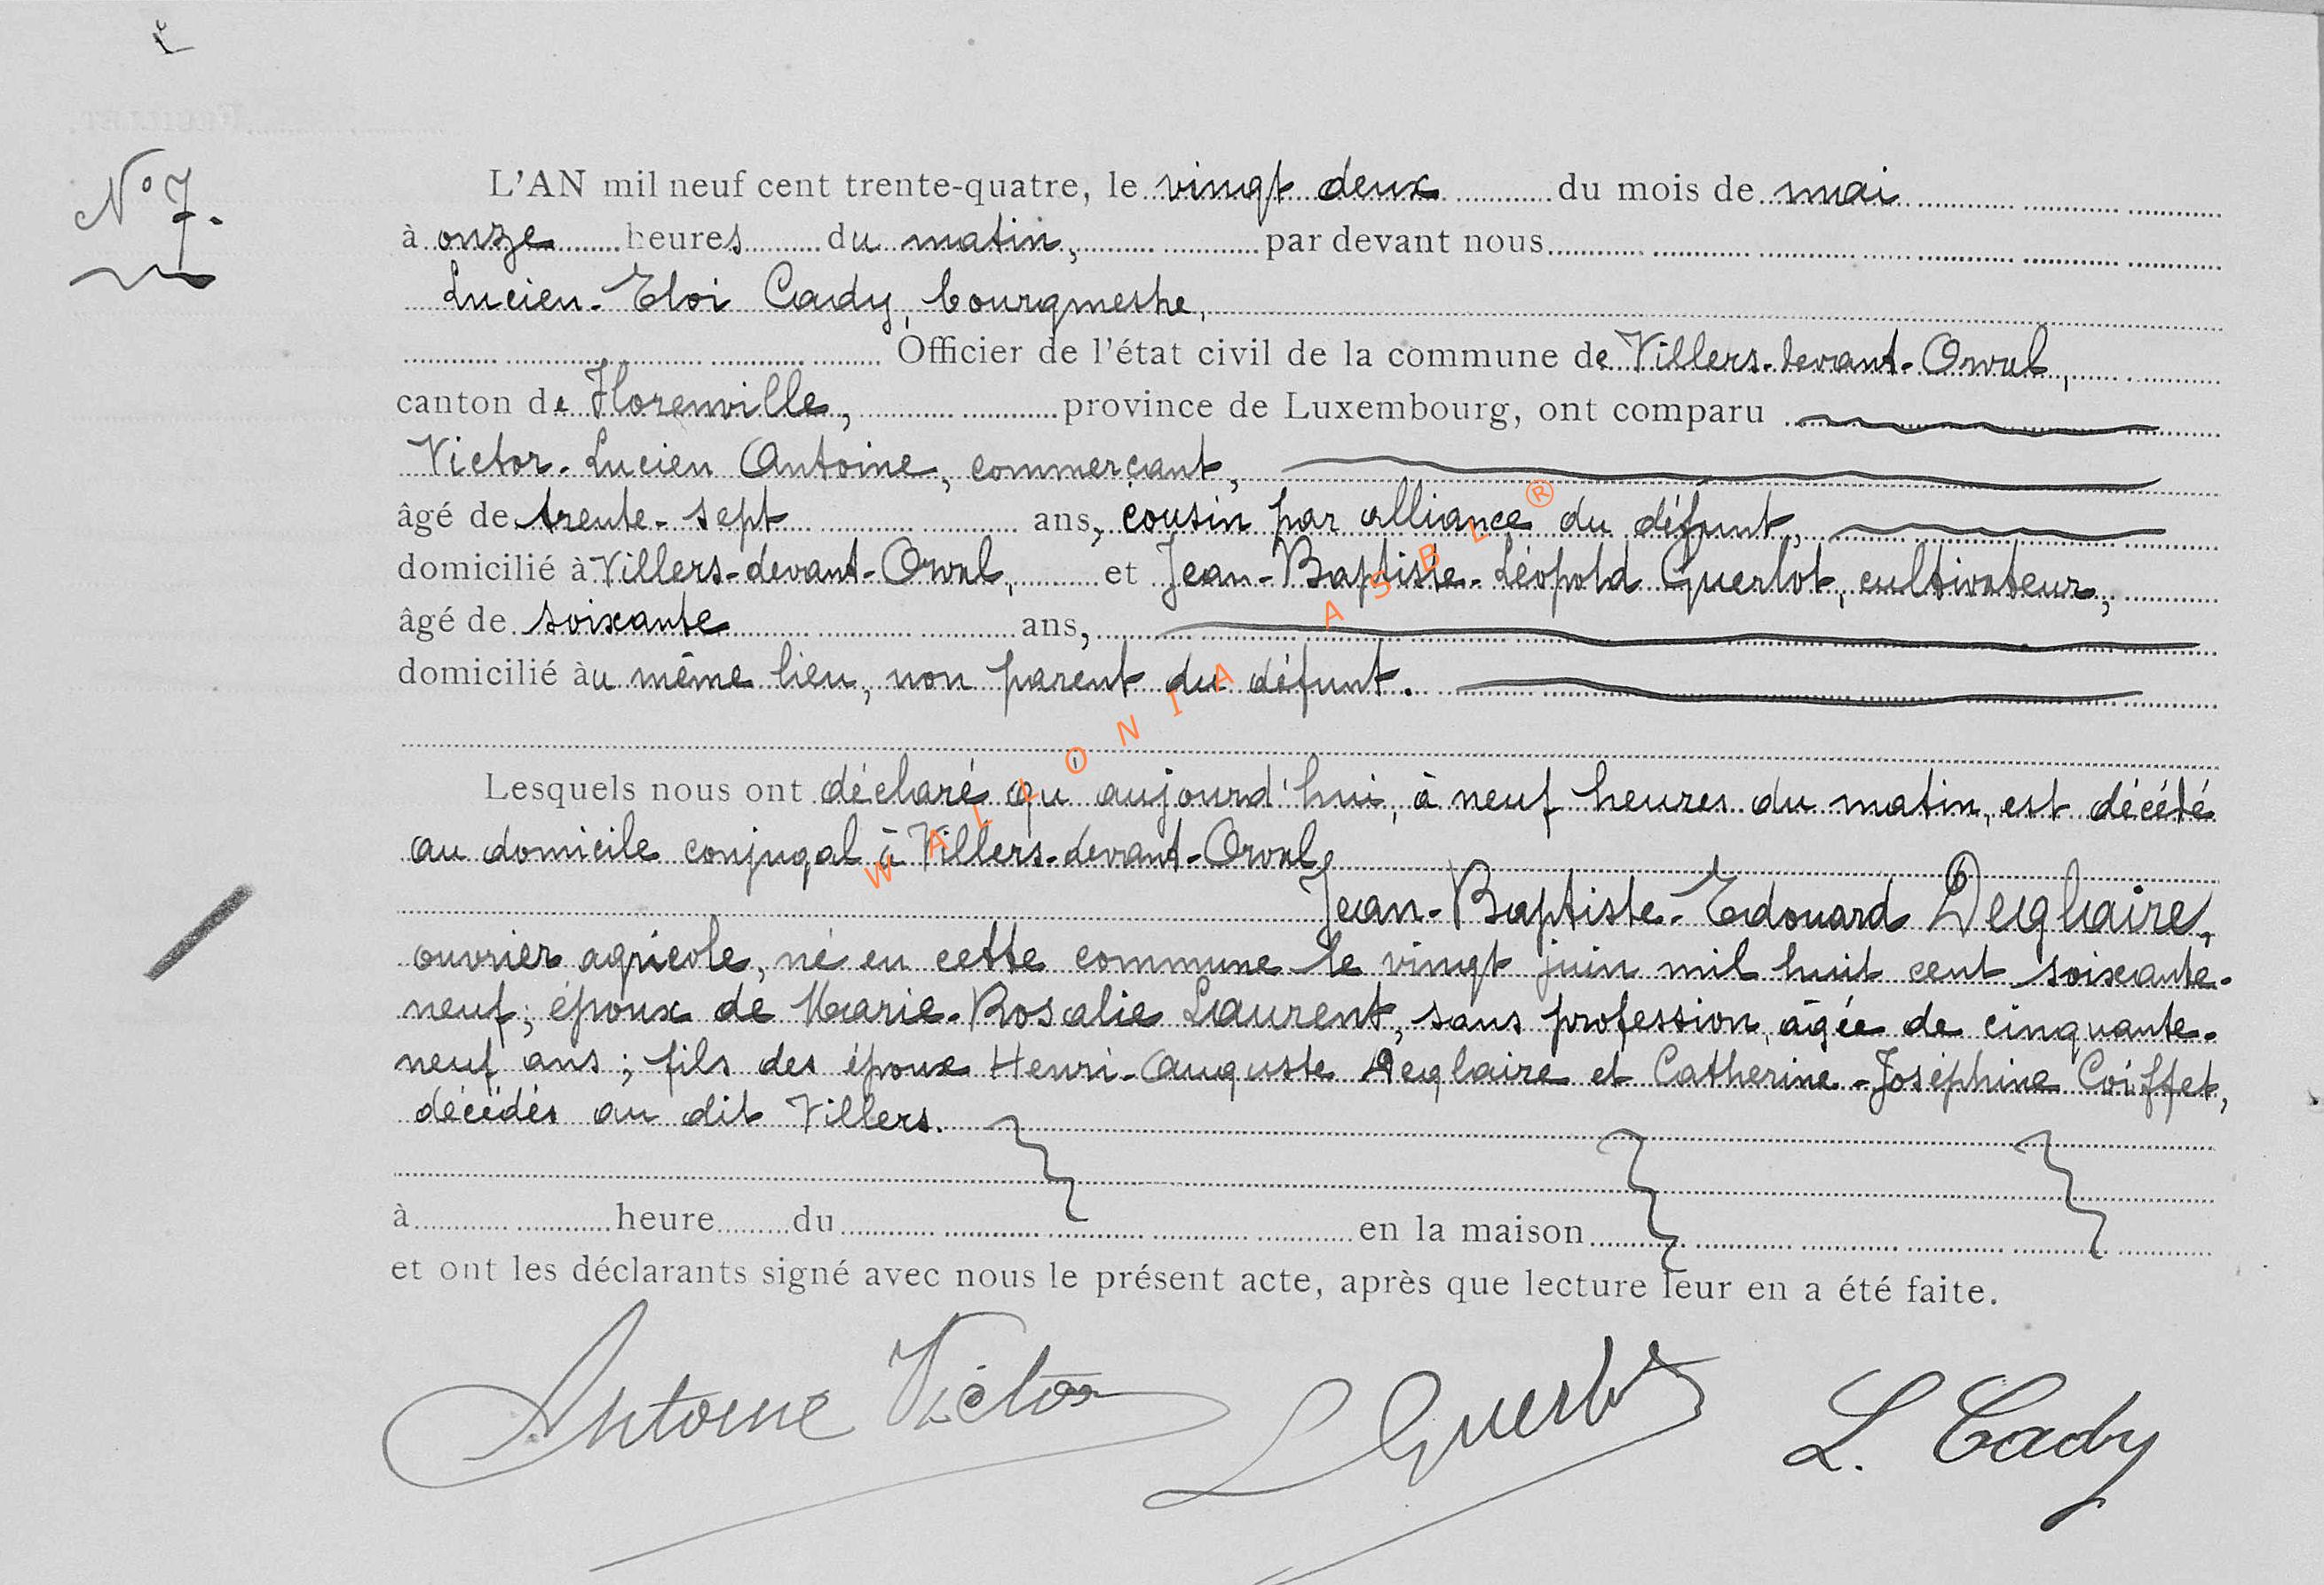 N° 7.
L'AN mil neuf cent trente-quatre, le vingt deux du mois de mai
à onze heures du matin, par devant nous
Lucien-Eloi Cady, bourgmestre,
Officier de l'état civil de la commune de Villers-devant-Orval,
canton de Florenville, province de Luxembourg, ont comparu
Victor-Lucien Antoine, commerçant,
âgé de trente-sept ans, cousin par alliance du défunt,
domicilié à Villers-devant-Orval, et Jean-Baptiste-Léopold Guerlot, cultivateur,
âgé de soixante ans,
domicilié au même lieu, non parent du défunt.
Lesquels nous ont déclaré qu'aujourd'hui, à neuf heures du matin, est décédé
au domicile conjugal à Villers-devant-Orval,
Jean-Baptiste-Edouard Deglaire,
ouvrier agricole, né en cette commune le vingt juin mil huit cent soixante-
neuf; époux de Marie-Rosalie Laurent, sans profession, âgée de cinquante-
neuf ans; fils des époux Henri-Auguste Deglaire et Catherine-Joséphine Coiffet,
décédés au dit Villers.
à heure du en la maison
et ont les déclarants signé avec nous le présent acte, après que lecture leur en a été faite.
Antoine Victor L Guerlot L. Cady
WALLONIA ASBL ®